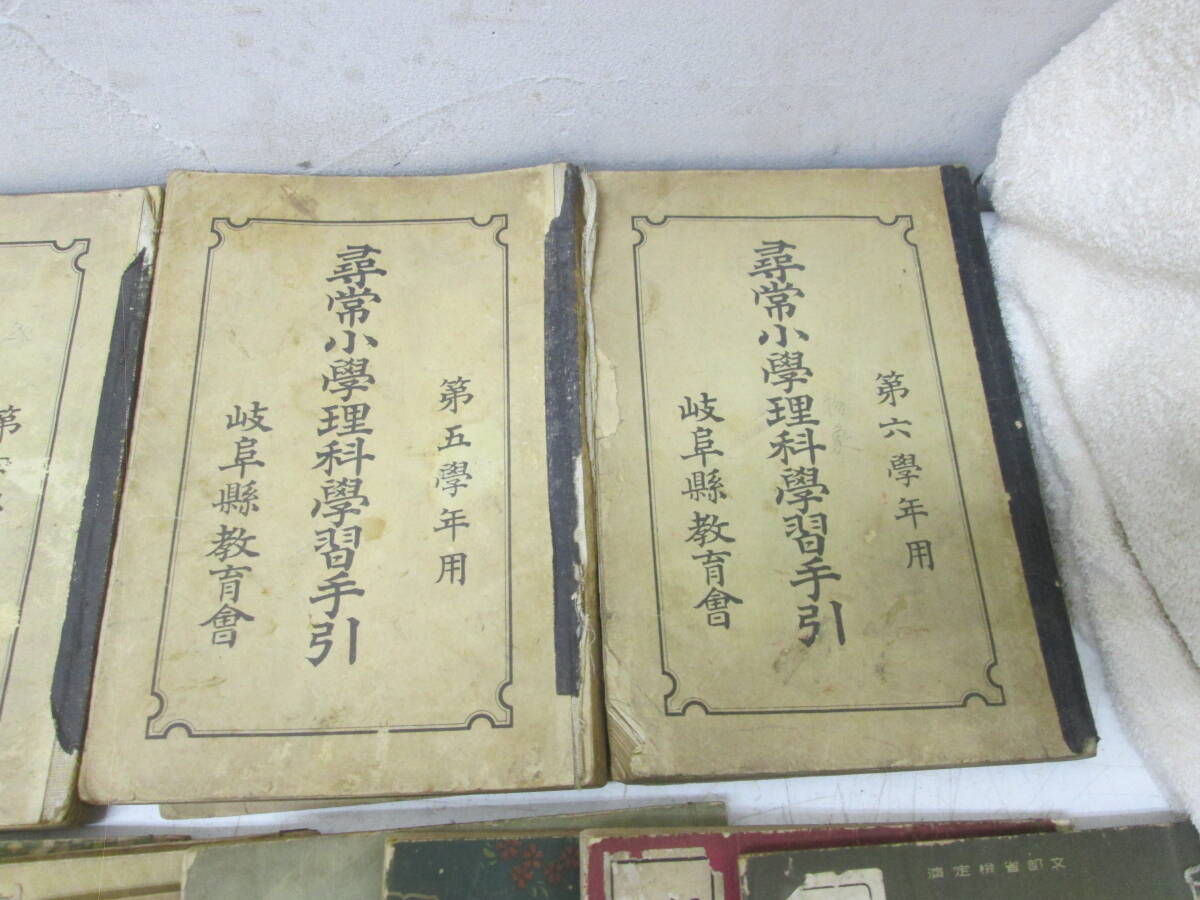 第六學年用
尋常小學理科學習手引
岐阜縣教育會
第五學年用
尋常小學理科學習手引
岐阜縣教育會
第
濟定檢省部文